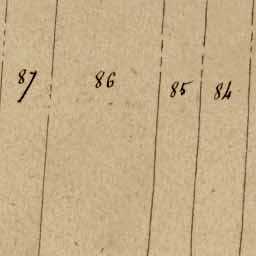 87 86 85 84